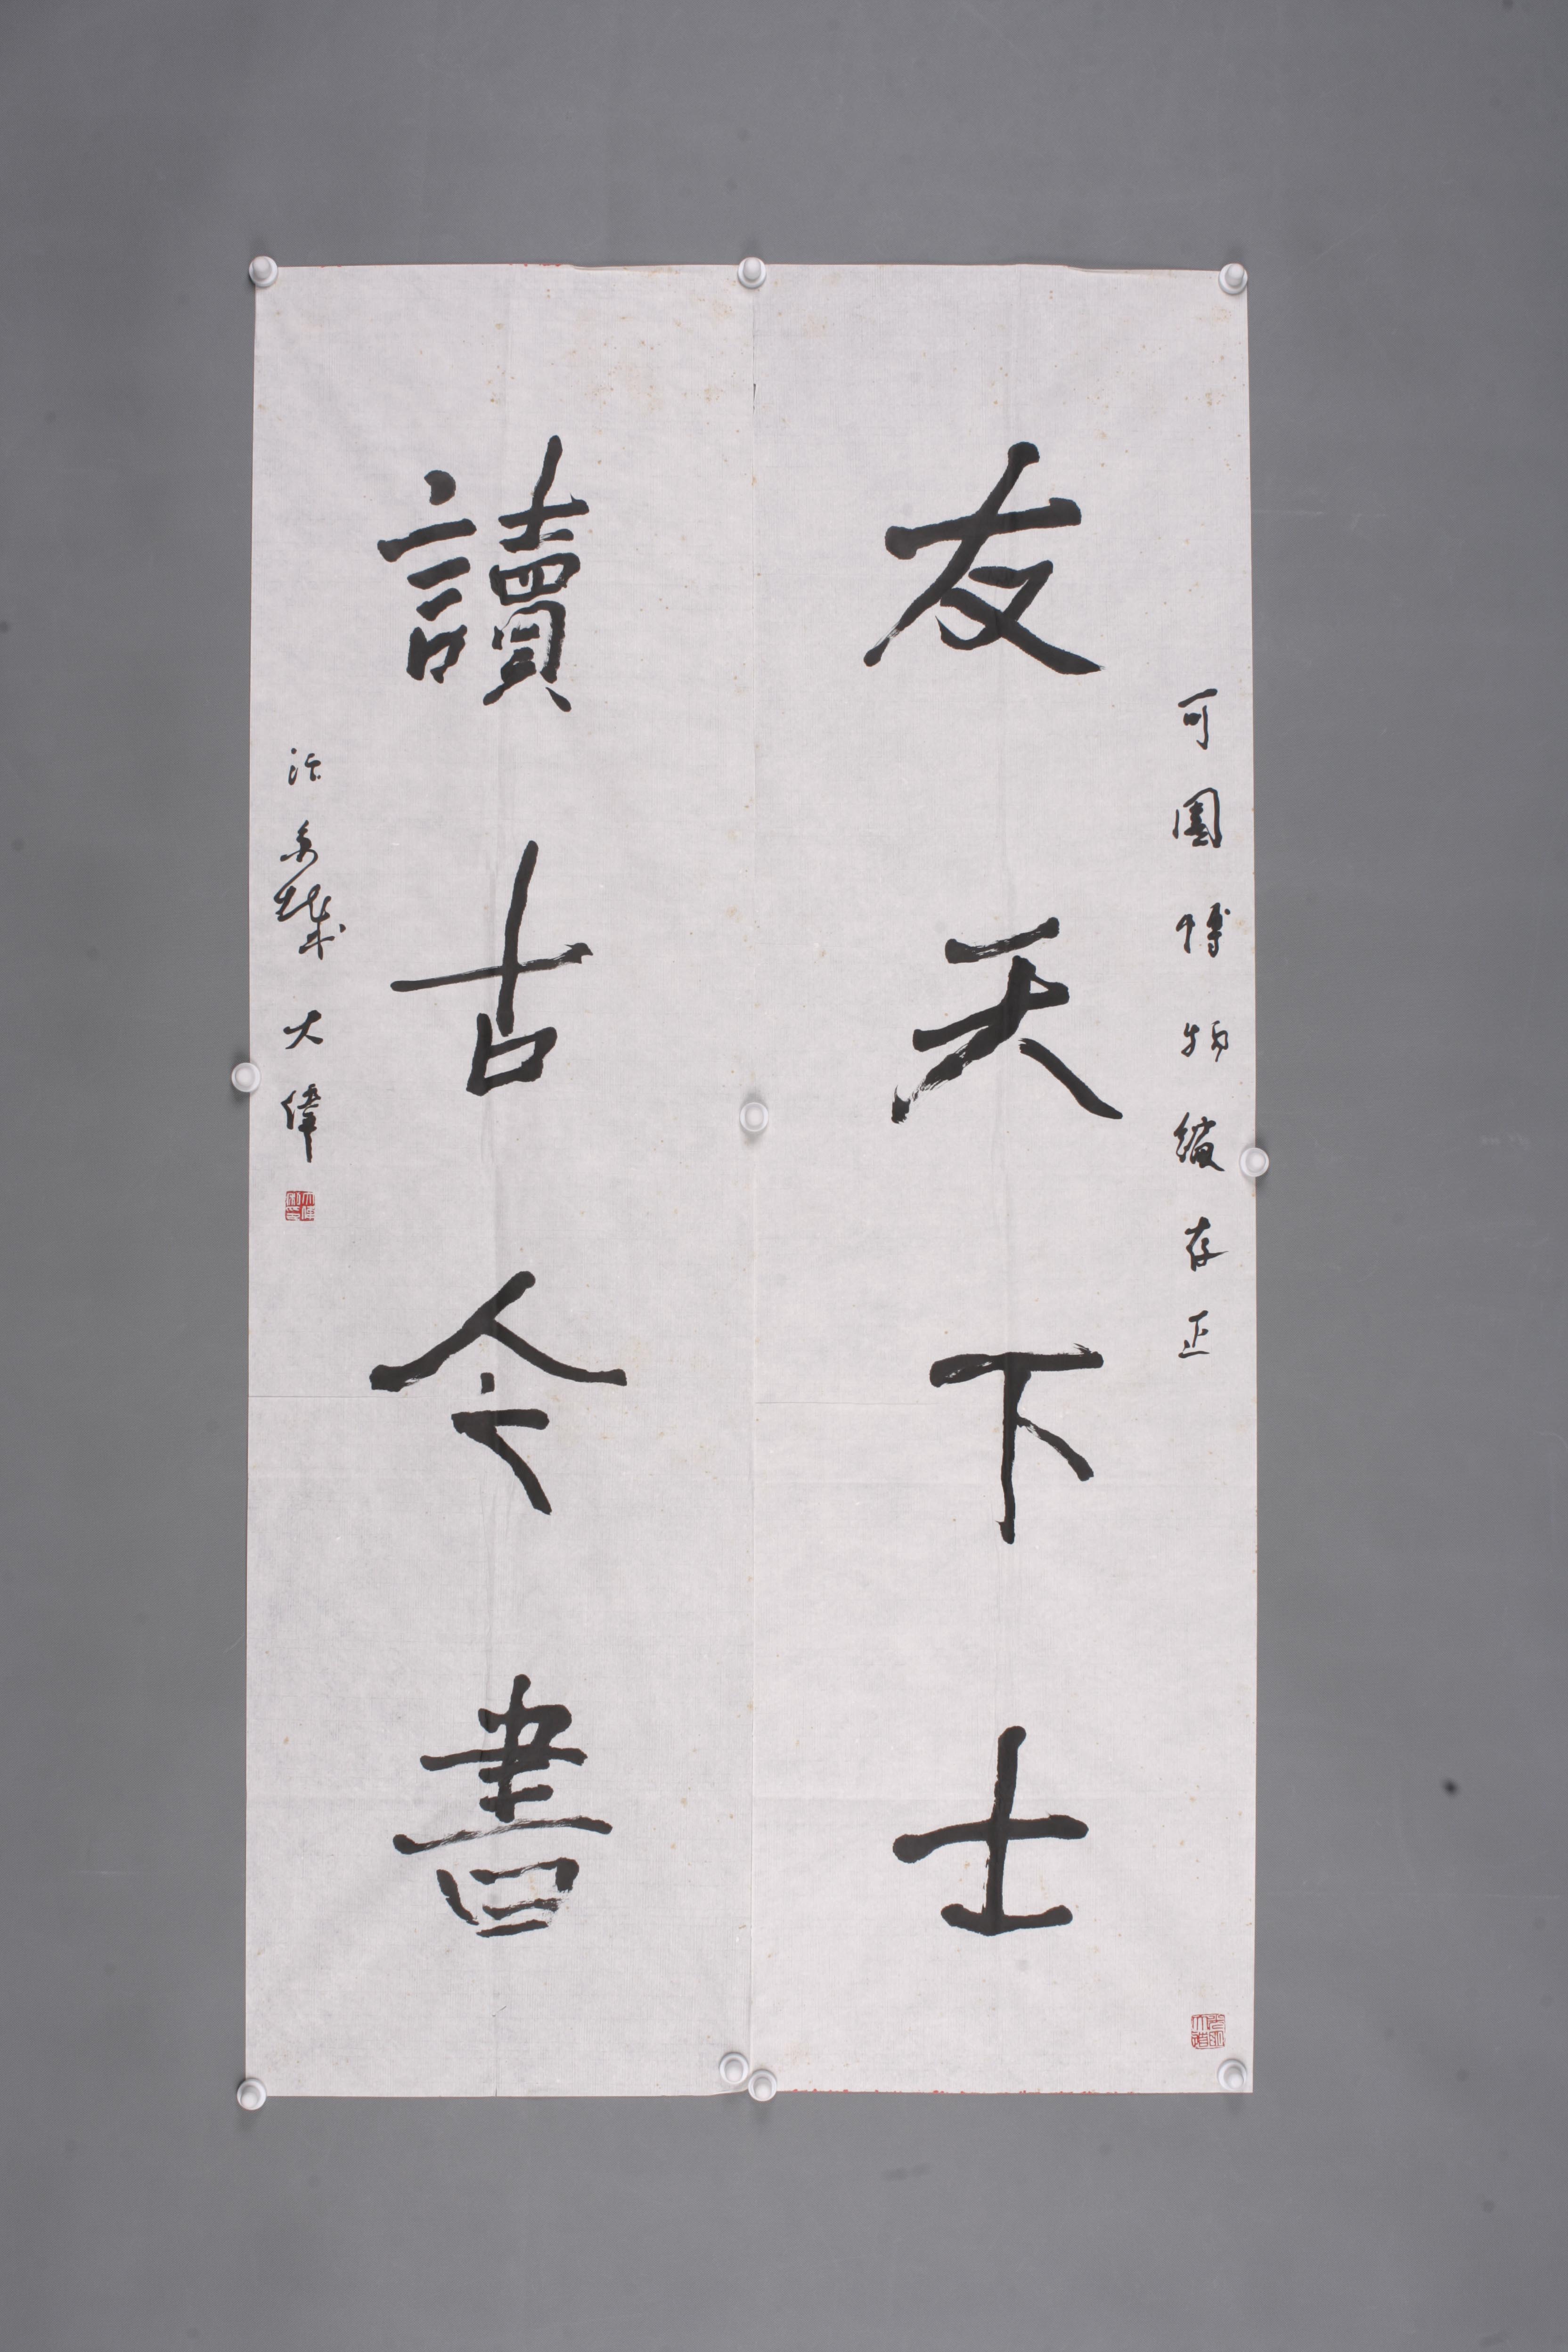 可園博物館存正
友天下士
讀古今書
大偉